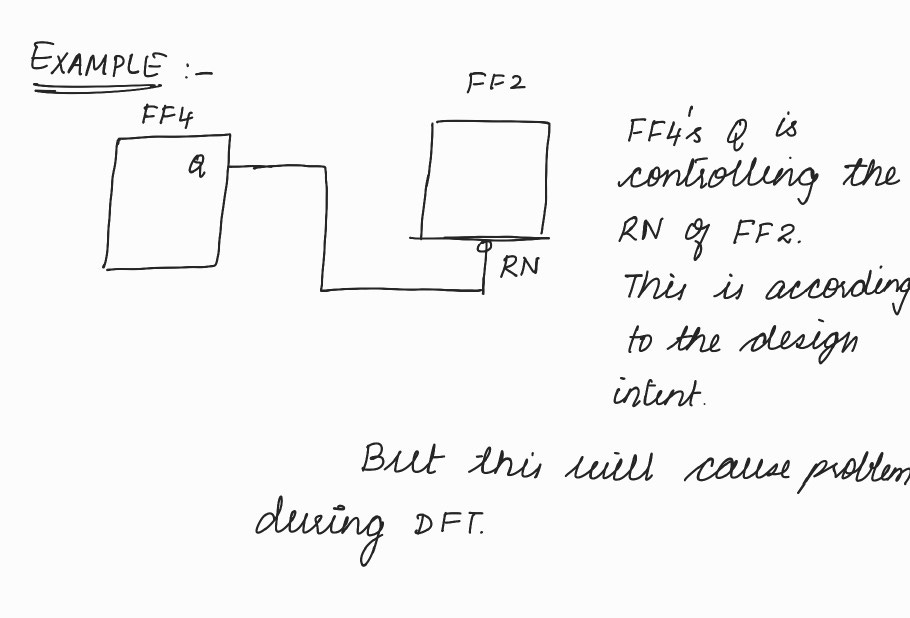 EXAMPLE :-
FF4
Q
FF2
RN
FF4's Q is
controlling the
RN of FF2.
This is according
to the design
intent.
But this will cause problem
during DFT.